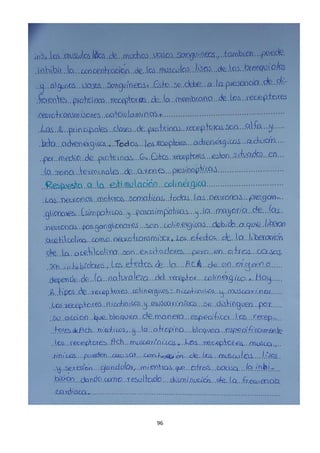 los musculos lisos de muchos vasos sanguineos, también puede
inhibir la concentración de los musculos lisos de los bronquiolos
y algunos vasos sanguineos. Esto se debe a la presencia de di-
ferentes proteinas receptoras de la membrana de los receptores
neurotransmisores catecolaminas.
Las 2 principales clases de proteinas receptoras son alfa y
beta adrenérgica. Todos los receptores adrenérgicos actúan
por medio de proteinas G. Estos receptores estan situados en
la zona terminales de axones presinápticas
Respuesta a la estimulación colinérgica
Las neuronas motoras somaticas todas las neuronas pregan-
glionares (simpáticas y parasimpáticas y la mayoria de las
neuronas posganglionares son colinérgicas debido a que liberan
acetilcolina como neurotransmisor. Los efectos de la liberación
de la acetilcolina son excitadores pero en otros casos
son inhibidores. Los efectos de la ACh de un organo
depende de la naturaleza del receptor colinérgico. Hay
2 tipos de receptores colinérgicos: nicotinicos y muscarinicos
Los receptores nicotinicos y muscarinicos se distinguen por
su acción que bloquea de manera especifica los recep-
tores de ACh nicotinicos, y la atropina bloquea especificamente
los receptores ACh muscarinicos. Los receptores musca-
rinicos pueden causar contracción de los musculos lisos
y secresión glandular, mientras que otros causa la inhi-
bicion dando como resultado disminución de la frecuencia
cardiaca.
96